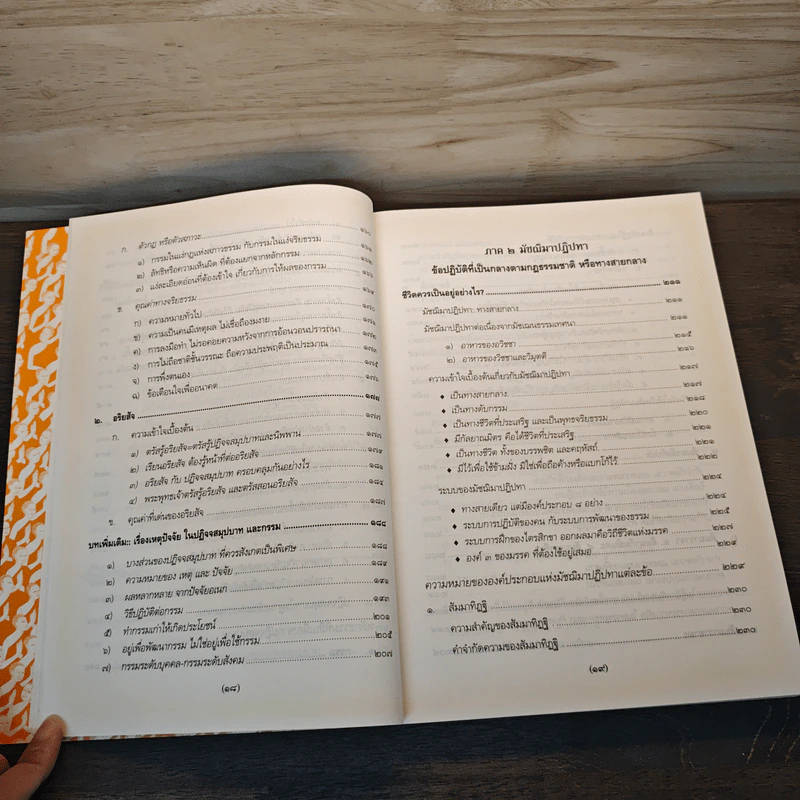 ก. ตัวกฎ หรือตัวสภาวะ ๑๖๐
๑) กรรมในแง่กฎแห่งสภาวธรรม กับกรรมในแง่จริยธรรม
๒) ลัทธิหรือความเห็นผิด ที่ต้องแยกจากหลักกรรม
๓) แง่ละเอียดอ่อนที่ต้องเข้าใจ เกี่ยวกับการให้ผลของกรรม
ข. คุณค่าทางจริยธรรม
ก) ความหมายทั่วไป
ข) ความเป็นคนมีเหตุผล ไม่เชื่อถืองมงาย
ค) การลงมือทำ ไม่รอคอยความหวังจากการอ้อนวอนปรารถนา
ง) การไม่ถือชาติชั้นวรรณะ ถือความประพฤติเป็นประมาณ
จ) การพึ่งตนเอง
ฉ) ข้อเตือนใจเพื่ออนาคต
๒. อริยสัจ ๑๗๗
ก. ความเข้าใจเบื้องต้น ๑๗๗
๑) ตรัสรู้อริยสัจ=ตรัสรู้ปฏิจจสมุปบาทและนิพพาน ๑๗๗
๒) เรียนอริยสัจ ต้องรู้หน้าที่ต่ออริยสัจ
๓) อริยสัจ กับ ปฏิจจสมุปบาท ครอบคลุมกันอย่างไร
๔) พระพุทธเจ้าตรัสรู้อริยสัจ และตรัสสอนอริยสัจ
ข. คุณค่าที่เด่นของอริยสัจ ๑๘๗
บทเพิ่มเติม: เรื่องเหตุปัจจัย ในปฏิจจสมุปบาท และกรรม ๑๘๘
๑) บางส่วนของปฏิจจสมุปบาท ที่ควรสังเกตเป็นพิเศษ ๑๘๘
๒) ความหมายของ เหตุ และ ปัจจัย ๑๘๙
๓) ผลหลากหลาย จากปัจจัยอเนก ๑๙๑
๔) วิธีปฏิบัติต่อกรรม ๑๙๓
๕) ทำกรรมเก่าให้เกิดประโยชน์ ๒๐๑
๖) อยู่เพื่อพัฒนากรรม ไม่ใช่อยู่เพื่อใช้กรรม ๒๐๕
๗) กรรมระดับบุคคล-กรรมระดับสังคม ๒๐๗
(๑๘)
ภาค ๒ มัชฌิมาปฏิปทา
ข้อปฏิบัติที่เป็นกลางตามกฎธรรมชาติ หรือทางสายกลาง
ชีวิตควรเป็นอยู่อย่างไร? ๒๑๑
มัชฌิมาปฏิปทา: ทางสายกลาง ๒๑๑
มัชฌิมาปฏิปทาต่อเนื่องจากมัชเฌนธรรมเทศนา ๒๑๑
๑) อาหารของอวิชชา ๒๑๕
๒) อาหารของวิชชาและวิมุตติ ๒๑๖
ความเข้าใจเบื้องต้นเกี่ยวกับมัชฌิมาปฏิปทา ๒๑๗
♦ เป็นทางสายกลาง ๒๑๗
♦ เป็นทางดับกรรม ๒๑๘
♦ เป็นทางชีวิตที่ประเสริฐ และเป็นพุทธจริยธรรม ๒๒๐
♦ มีกัลยาณมิตร คือได้ชีวิตที่ประเสริฐ ๒๒๑
♦ เป็นทางชีวิต ทั้งของบรรพชิต และคฤหัสถ์ ๒๒๑
♦ มีไว้เพื่อใช้ข้ามฝั่ง มิใช่เพื่อถือค้างหรือแบกโก้ไว้ ๒๒๒
ระบบของมัชฌิมาปฏิปทา ๒๒๔
♦ ทางสายเดียว แต่มีองค์ประกอบ ๘ อย่าง ๒๒๔
♦ ระบบการปฏิบัติของคน กับระบบการพัฒนาของธรรม ๒๒๕
♦ ระบบการฝึกของไตรสิกขา ออกผลมาคือวิถีชีวิตแห่งมรรค ๒๒๗
♦ องค์ ๓ ของมรรค ที่ต้องใช้อยู่เสมอ ๒๒๙
ความหมายขององค์ประกอบแห่งมัชฌิมาปฏิปทาแต่ละข้อ ๒๒๙
๑. สัมมาทิฏฐิ ๒๓๐
ความสำคัญของสัมมาทิฏฐิ ๒๓๐
คำจำกัดความของสัมมาทิฏฐิ ๒๓๐
(๑๙)